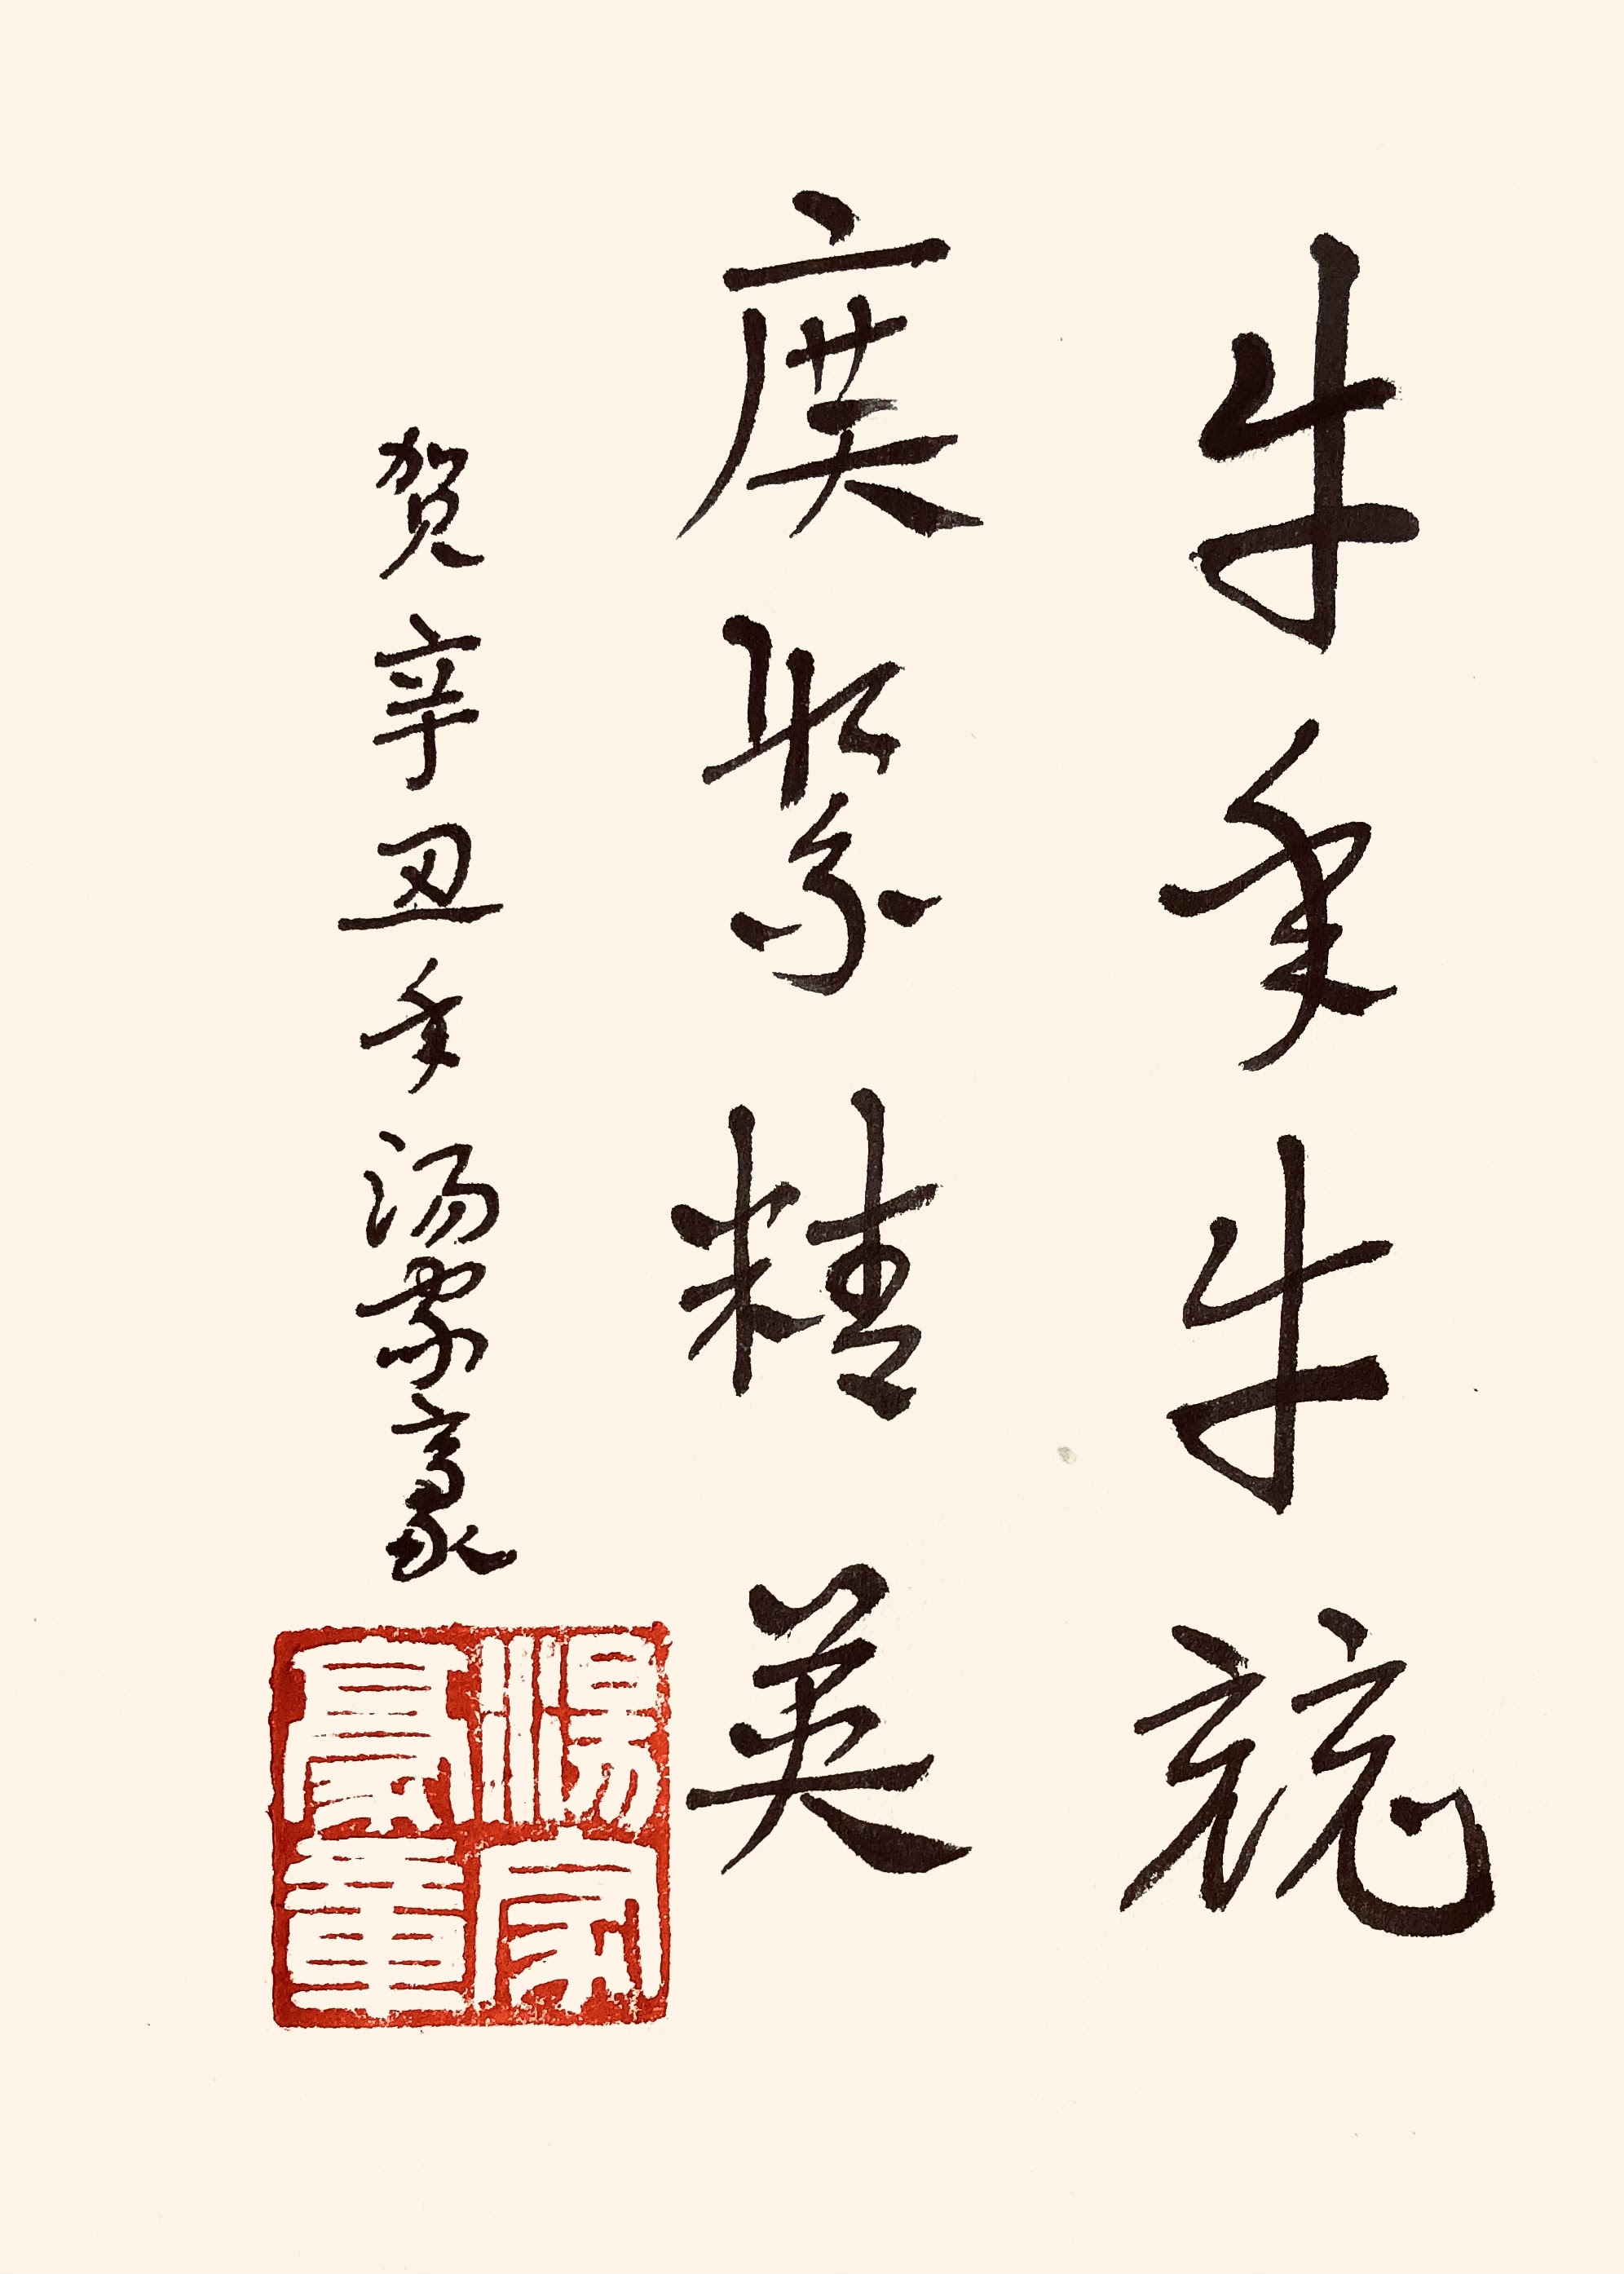 牛年牛競
廣聚精英
贺辛丑年汤家豪
湯家
豪章